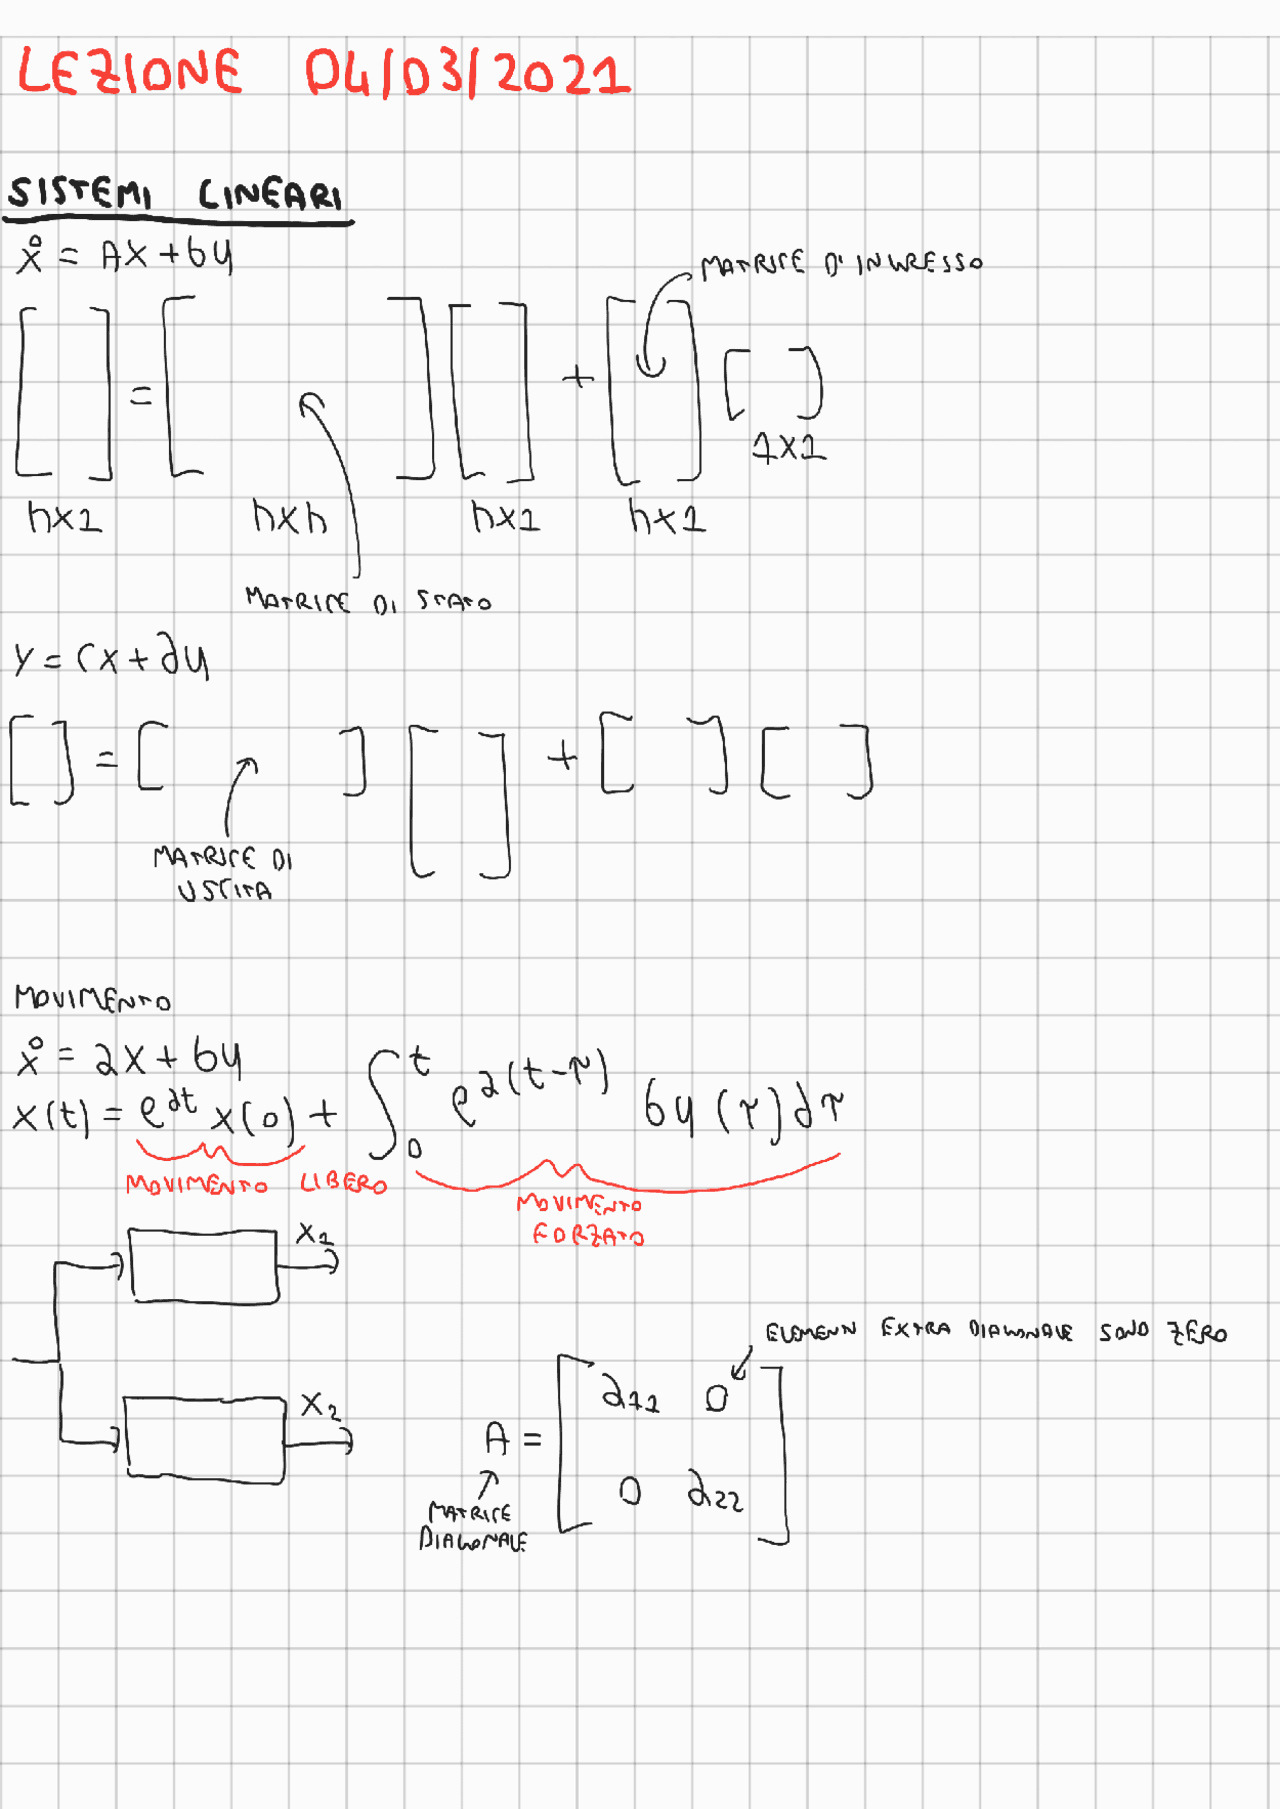 LEZIONE 04/03/2021
SISTEMI LINEARI
ẋ = Ax + bu
MATRICE D'INGRESSO
[ ] = [ ] [ ] + [ ] [ ]
1x1
nx1 nxn nx1 nx1
MATRICE DI STATO
y = Cx + du
[ ] = [ ] [ ] + [ ] [ ]
MATRICE DI
USCITA
MOVIMENTO
ẋ = ax + bu
x(t) = e^{at} x(0) + ∫₀ᵗ e^{a(t-τ)} bu(τ)dτ
MOVIMENTO LIBERO
MOVIMENTO
FORZATO
x₁
ELEMENTI EXTRA DIAGONALE SONO ZERO
x₂
A = [ a₁₁ 0
0 a₂₂ ]
MATRICE
DIAGONALE